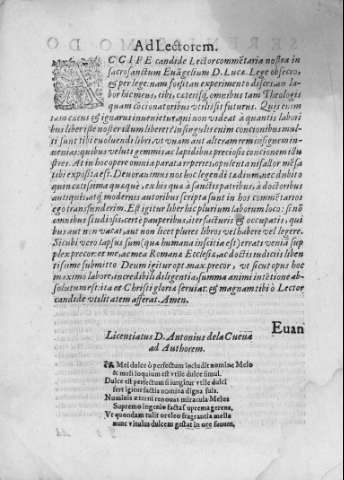 Ad Lectorem.
ACCIPE candide Lector commētaria nostra in
sacrosanctum Euāgelium D. Lucæ. Lege obsecro,
& perlege: nam forsitan experimento disces, an la-
bor hic meus, tibi, cæterisq; omnibus tam Theologis
quam cōcionatoribus vtilis sit futurus. Quis enim
tam cæcus & ignarus inuenietur, qui non videat à quantis labori
bus liber iste noster idum liberet? In singulis enim concionibus mul-
ti sunt tibi euoluendi libri, vt vnam aut alteram rem insignem in-
uenias: quibus veluti gemmis ac lapidibus preciosis concionem illu
stres. At in hoc opere omnia parata
tibi exposita est. Deuorauimus nos hoc legendi tædium, nec dubito
quin
antiquis, atq; modernis autoribus scripta sunt in hos commētarios
ego transfuderim. Est igitur liber hic plurium laborum loco: si nō
omnibus studiosis, certè pauperibus, iter facturis, & occupatis, qui
bus aut non vacat, aut non licet plures libros vel habere vel legere.
Sicubi vero lapsus sum (quæ humana inscitia est) errati veniā sup
plex precor: et me, ac mea Romanæ Ecclesiæ, ac doctis iudiciis liben
tissime submitto. Deum igitur opt. max. precor, vt sicut opus hoc
maximo labore, incredibili diligentia, summa animi intētione ab-
solutum est: ita et Christi gloriæ seruiat: & magnam tibi ò Lector
candide vtilitatem afferat. Amen.
Euan
Licentiatus D. Antonius de la Cueua
ad Authorem.
Mel dulce ò perfectum includit nomine Melo
& meli loquium est vtile dulce simul.
Dulce est perfectum si iungitur vtile dulci
sert igitur factis nomina digna suis.
Nominis æterni renouas miracula Melos
Supremo ingenio factas suprema gerens,
Vt quondam tulit ore leo fragrantia mella
nunc vitulus dulcem gestat in ore fauum,